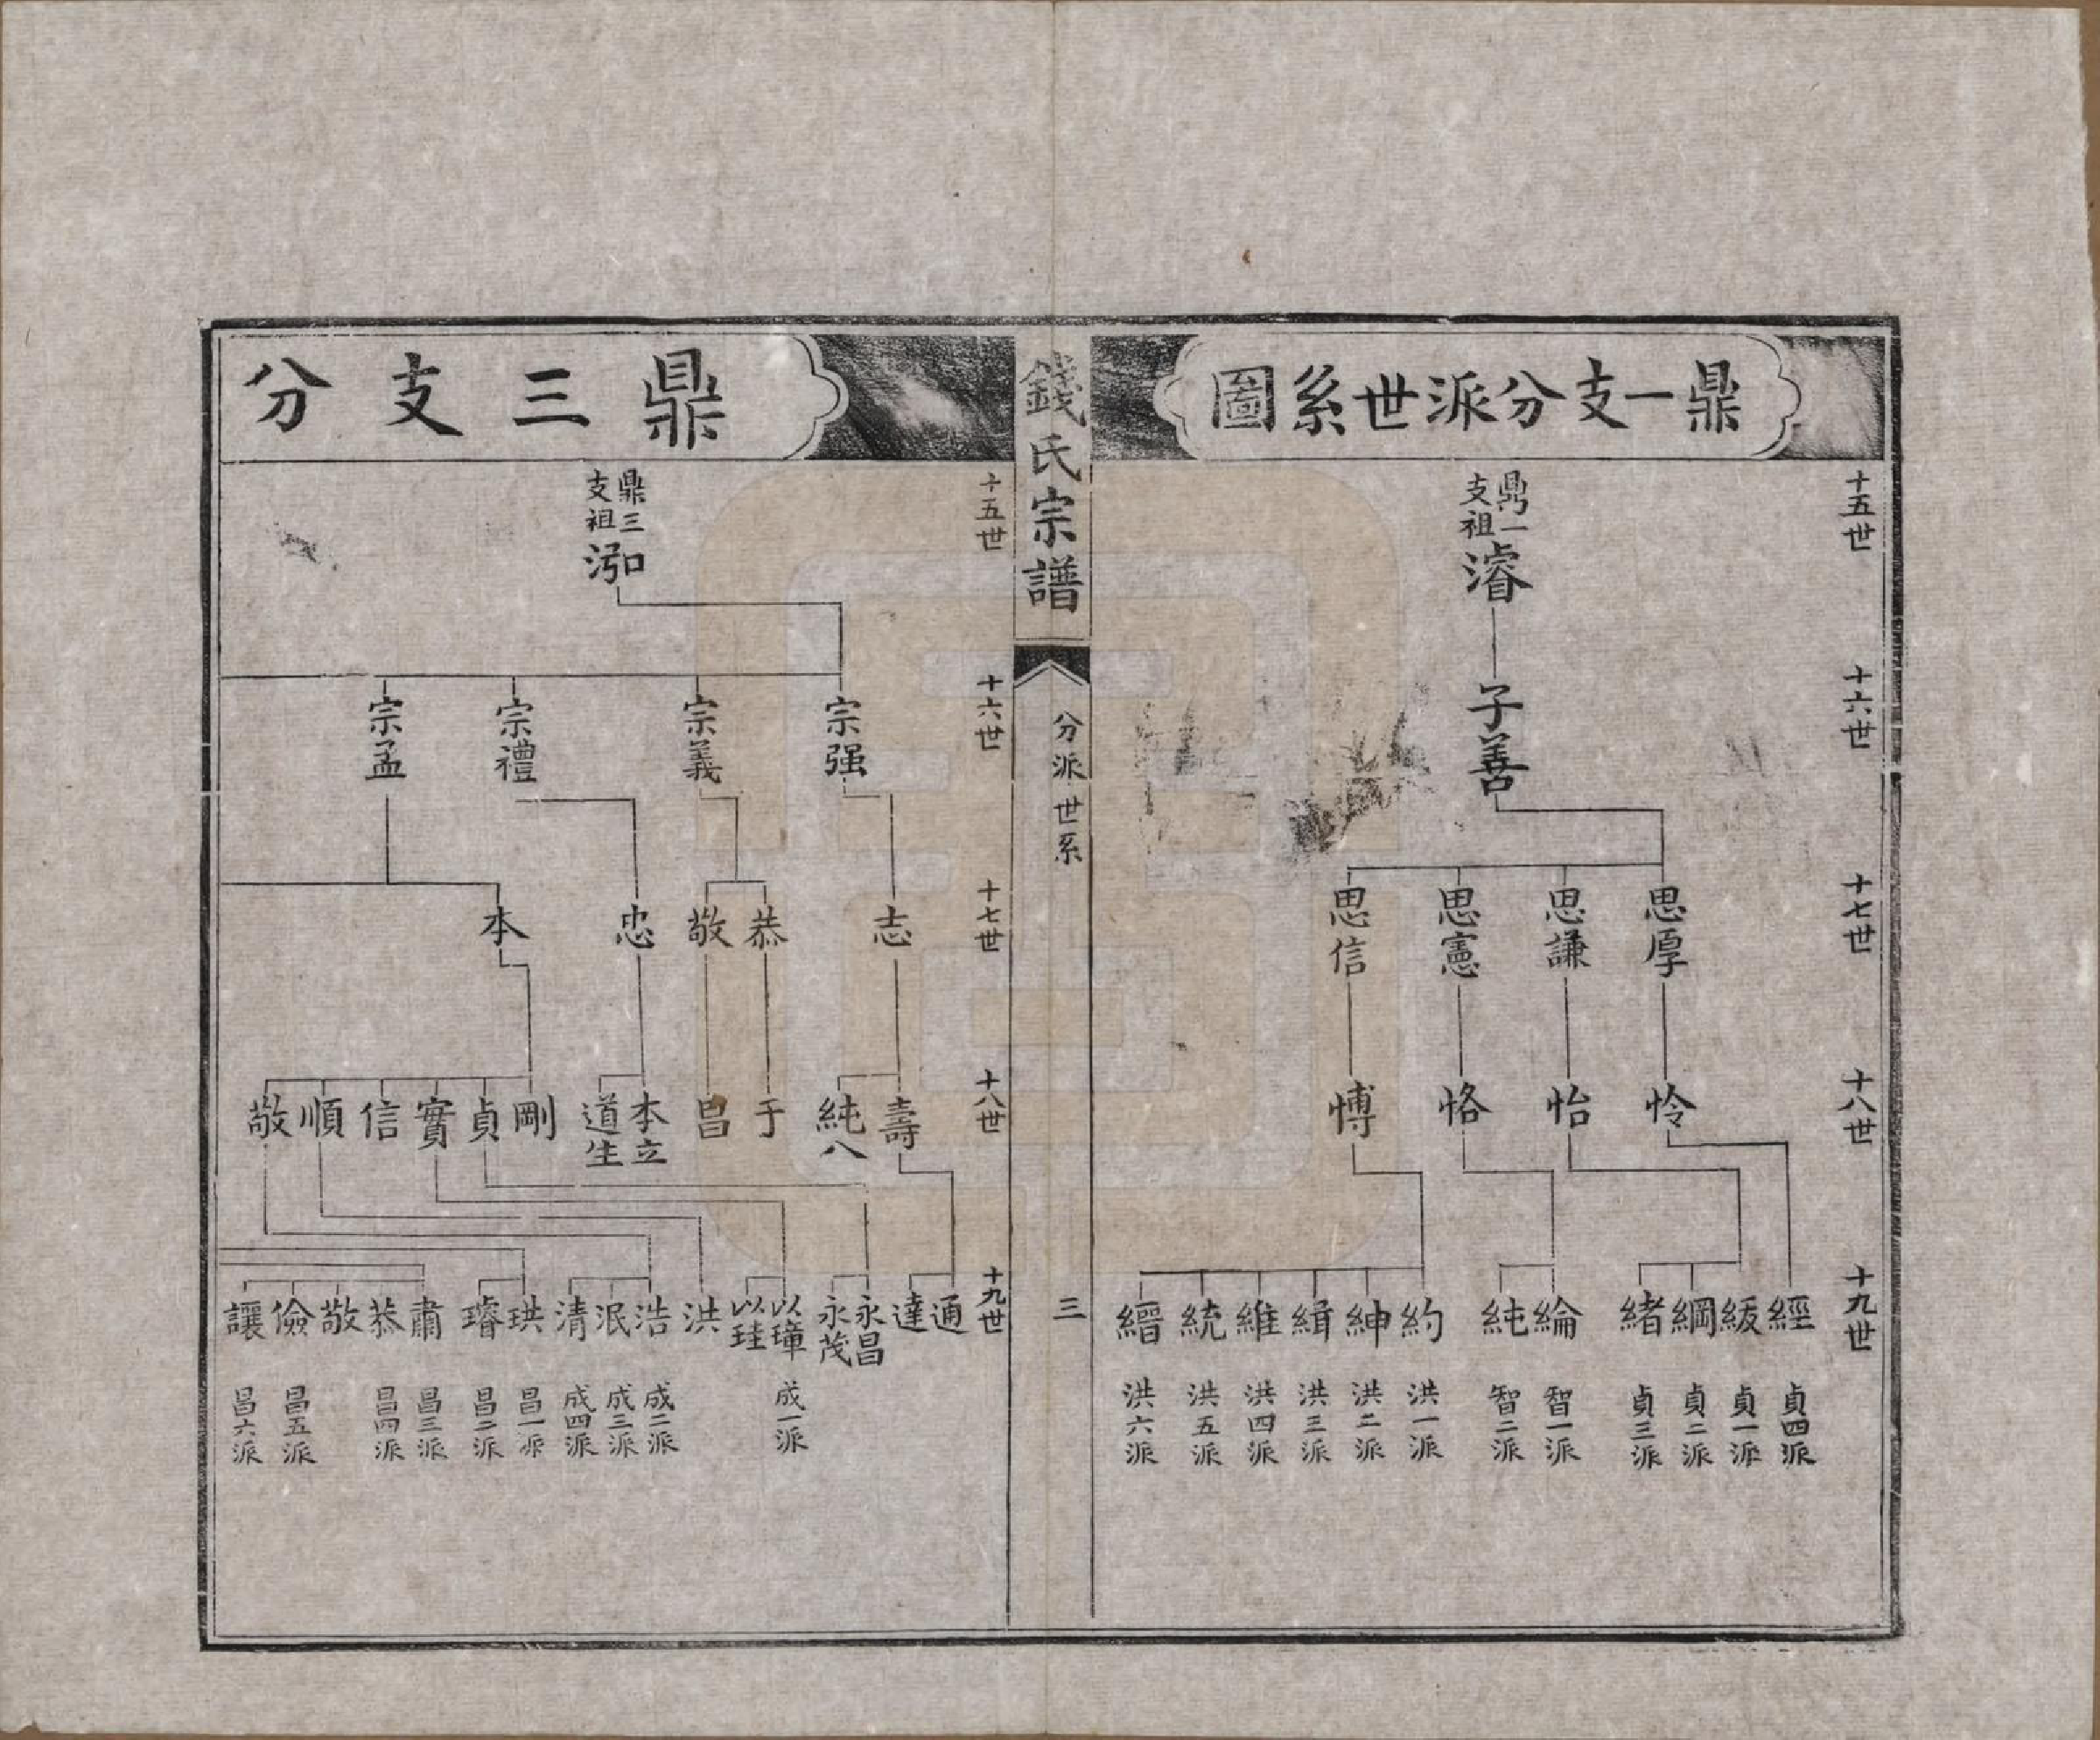 鼎一支分派世系圖
十五世
鼎一支祖
濬
十六世
子善
十七世
思厚
思謙
思憲
思信
十八世
怜
怡
恪
愽
十九世
經
緩
綱
緒
綸
純
約
紳
緝
維
統
縉
貞四派
貞一派
貞二派
貞三派
智一派
智二派
洪一派
洪二派
洪三派
洪四派
洪五派
洪六派
錢氏宗譜
分派世系
三
鼎三支分
十五世
鼎三支祖
泓
十六世
宗强
宗義
宗禮
宗孟
十七世
志
恭
敬
忠
本
十八世
壽
純八
于
昌
本立
道生
剛
貞
實
信
順
敬
十九世
通
達
永昌
永茂
以璋
以珪
洪
浩
泯
清
珙
璿
肅
恭
敬
儉
讓
成一派
成二派
成三派
成四派
昌一派
昌二派
昌三派
昌四派
昌五派
昌六派